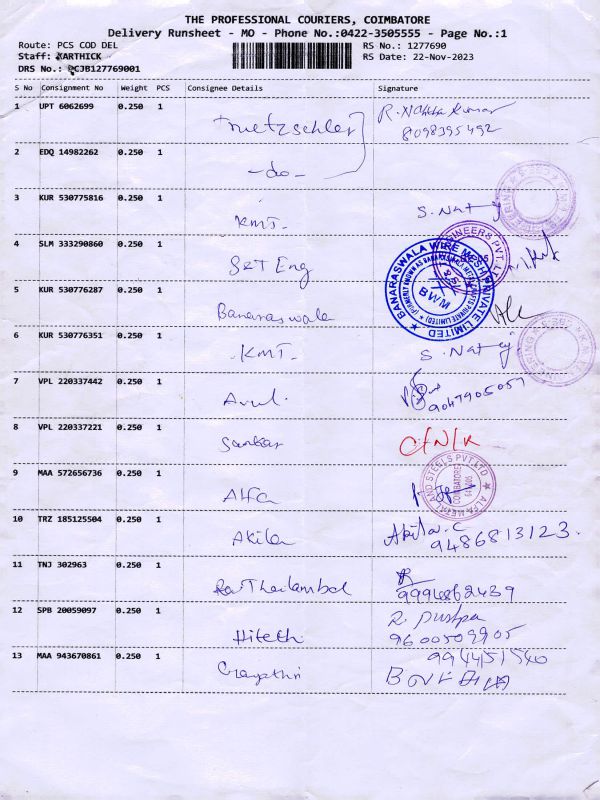 THE PROFESSIONAL COURIERS, COIMBATORE
Delivery Runsheet - MO - Phone No.:0422-3505555 - Page No.:1
Route: PCS COD DEL
RS No.: 1277690
Staff: KARTHICK
RS Date: 22-Nov-2023
DRS No.: PCJB127769001
S No Consignment No Weight PCS Consignee Details Signature
1 UPT 6062699 0.250 1 8098395492
2 EDQ 14982262 0.250 1 -do-
3 KUR 530775816 0.250 1 KMT. S. Nataj
4 SLM 333290860 0.250 1 S&T Eng
5 KUR 530776287 0.250 1 Banaraswala
BANARASWALA WIRE MESH PRIVATE LIMITED
BWM
6 KUR 530776351 0.250 1 KMT. S. Nataj
7 VPL 220337442 0.250 1 Arul. 9047905057
8 VPL 220337221 0.250 1 Sankar
9 MAA 572656736 0.250 1 Alfa
ALFA METAL AND STEELS PVT LTD
COIMBATORE
10 TRZ 185125504 0.250 1 Akila Akila. C
9486813123.
11 TNJ 302963 0.250 1
12 SPB 20059097 0.250 1 Hitesh R. Pushpa
9600509905
13 MAA 943670861 0.250 1 Gayathri 9944151540